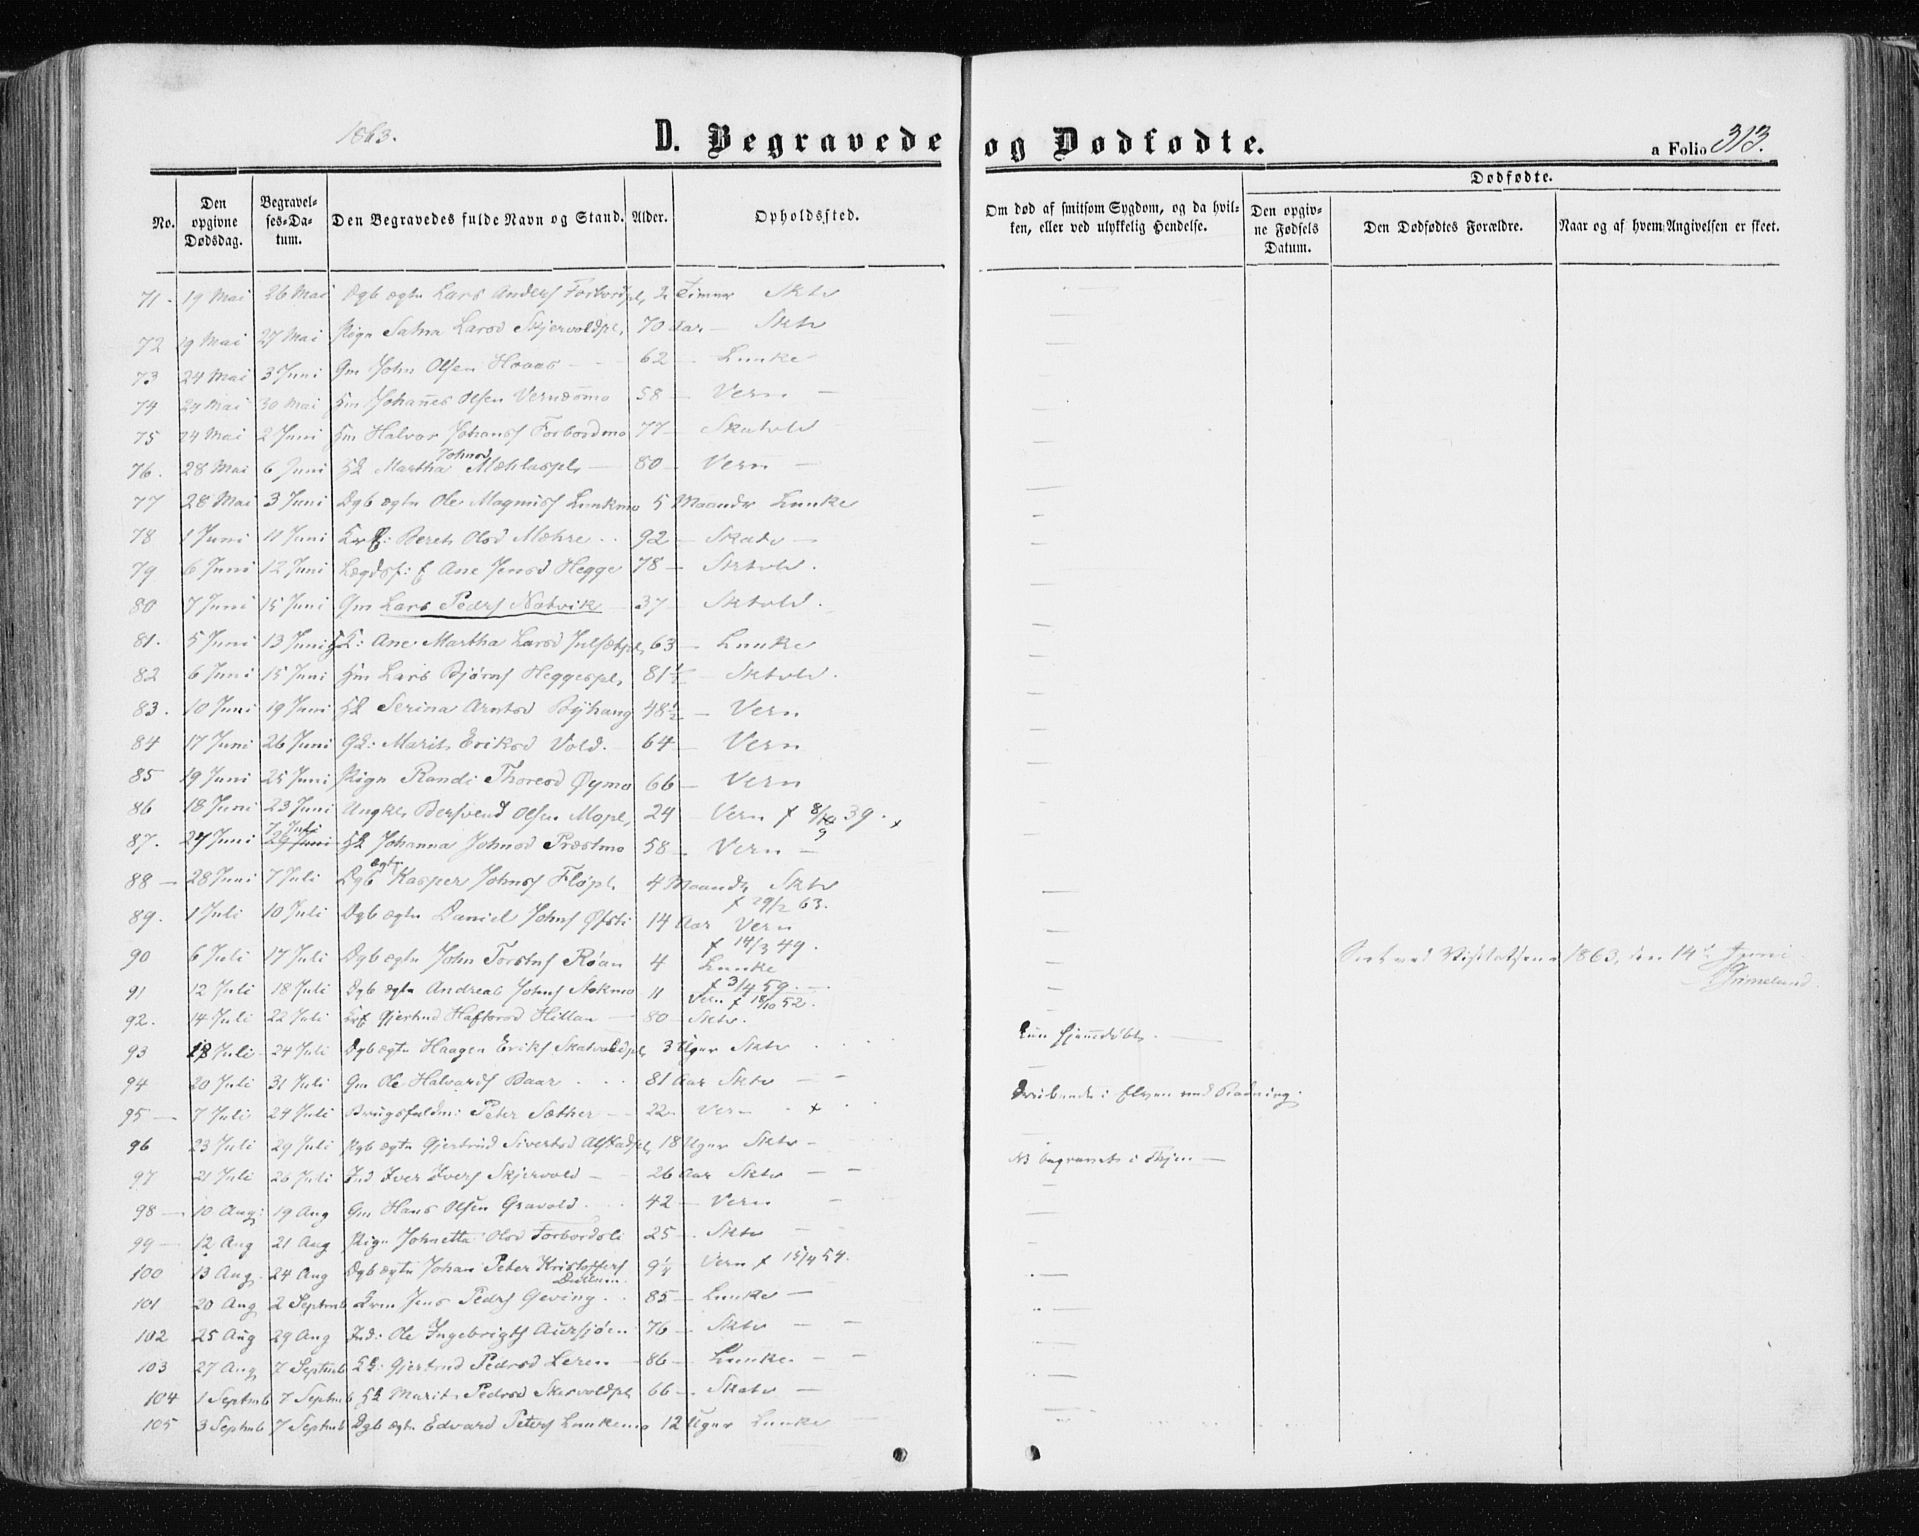 1863.
D. Begravede og Dødfødte.
a Folio 313.
No.
Den opgivne Dødsdag.
Begravelses-Datum.
Den Begravedes fulde Navn og Stand.
Alder.
Opholdssted.
Om død af smitsom Sygdom, og da hvilken, eller ved ulykkelig Hendelse.
Dødfødte.
Den opgivne Fødsels Datum.
Den Dødfødtes Forældre.
Naar og af hvem Angivelsen er skeet.
71. 19 Mai 26 Mai Dgb ægte Lars Anders Forbordpl, 2 Timer Sktv
72 19 Mai 27 Mai Pige Larsd Skjervoldpl, 70 Aar - Sktv
73 24 Mai 3 Juni Gm John Olsen Hovas - 62 - Lunke
74 24 Mai 30 Mai Johannes Olsen Vernesmo 58 - Vern -
75 24 Mai 2 Juni Halvor Johans Forbordmo 77 - Skatvld
76. 28 Mai 6 Juni Martha Johnsd Mæhlaspl, - 80 - Vern -
77 28 Mai 3 Juni Dgb ægte Ole Magnus Lunkmo 5 Maander Lunke
78 1 Juni 11 Juni Beret Olsd Mæhre .. 92 - Skatv -
79 6 Juni 12 Juni Lægdsf: Ane Jensd Hegge 78 - Sktvld.
80 7 Juni 15 Juni Gm Lars Peders Natvik - 37 - Sktvld.
81. 5 Juni 13 Juni Ane Martha Larsd Julsætpl, 63 - Lunke
82 6 Juni 15 Juni Lars Bjørns Heggespl, 81½ - Sktvld.
83. 10 Juni 19 Juni Serina Arntsd Byhaug 48½ - Vern
84 17 Juni 26 Juni Marit Eriksd Vold. - 64 - Vern
85 19 Juni 25 Juni Pige Randi Thoresd Øymo 66 - Vern
86 18 Juni 23 Juni Ungk. Bersvend Olsen Mopl, 24 - Vern f 8/9 39. x
87. 27 Juni 7 Juli Johanna Johnsd Præstmo 58 - Vern -
88 - 28 Juni 7 Juli Dgb ægte Kasper Johns Fløpl, 4 Maand. Sktv f 29/2 63.
89. 1 Juli 10 Juli Dgb ægte Daniel Johns Øfsti 14 Aar Vern f 14/3 49.
90 6 Juli 17 Juli Dgb ægte John Torstens Røan 4 Lunke f 3/4 59.
Seet ved Visitatsen 1863, den 14de Juni
Grimelund.
91 12 Juli 18 Juli Dgb ægte Andreas Johns Stokmo 11 Vern f 18/10 52.
92. 14 Juli 22 Juli Gjertrud Haftorsd Hillan - 80 - Sktv.
93 18 Juli 24 Juli Dgb ægte Haagen Eriks Skatvoldpl, 3 Uger Sktv . . . Kun hjemmedøbt. -
94 20 Juli 31 Juli Gm Ole Halvards Baar . . . 81 Aar Sktv - -
95 - 7 Juli 24 Juli Brugsfuldm: Peter Sæther - 22 - Vern . x . Druknede i Elven ved Badning.
96 23 Juli 29 Juli Dgb ægte Gjertrud Sivertsd Alstadpl, 18 Uger Sktv -
97 21 Juli 26 Juli Ind Iver Ivers Skjervold - 26 Aar Sktv - - NB begravet i
98 - 10 Aug: 19 Aug Gm Hans Olsen Gravold . . . 42 - Vern -
99 - 12 Aug 21 Aug Pige Johnetta Olsd Forbordsli 25 - Sktv - -
100 13 Aug. 24 Aug Dgb ægte Johan Peter Kristoffers 9¼ Vern f 15/4 54.
101 20 Aug 2 Septmb Jens Peders Geving . . 85 - Lunke -
102 25 Aug 29 Aug Ind: Ole Ingebrigts Aursjøen 76 - Sktv - -
103 27 Aug 7 Septmb Gjertrud Pedersd Leren - 86 - Lunke. - -
104 1 Septmb 7 Septmb Marit Pedersd Skjervoldpl, 66 - Skatv -
105 3 Septmb 7 Septmb Dgb ægte Edvard Peters Lunkemo 12 Uger Lunke -